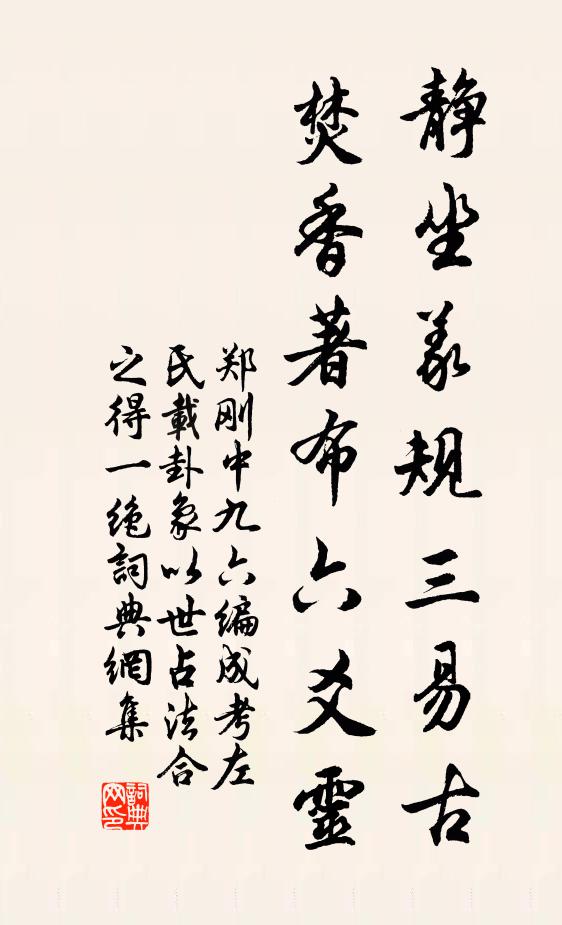 静坐羲规三易古
焚香著布六爻靈
郑刚中九六编成考左
氏載卦象以世占法合
之得一绝詞典網集
詞典网印